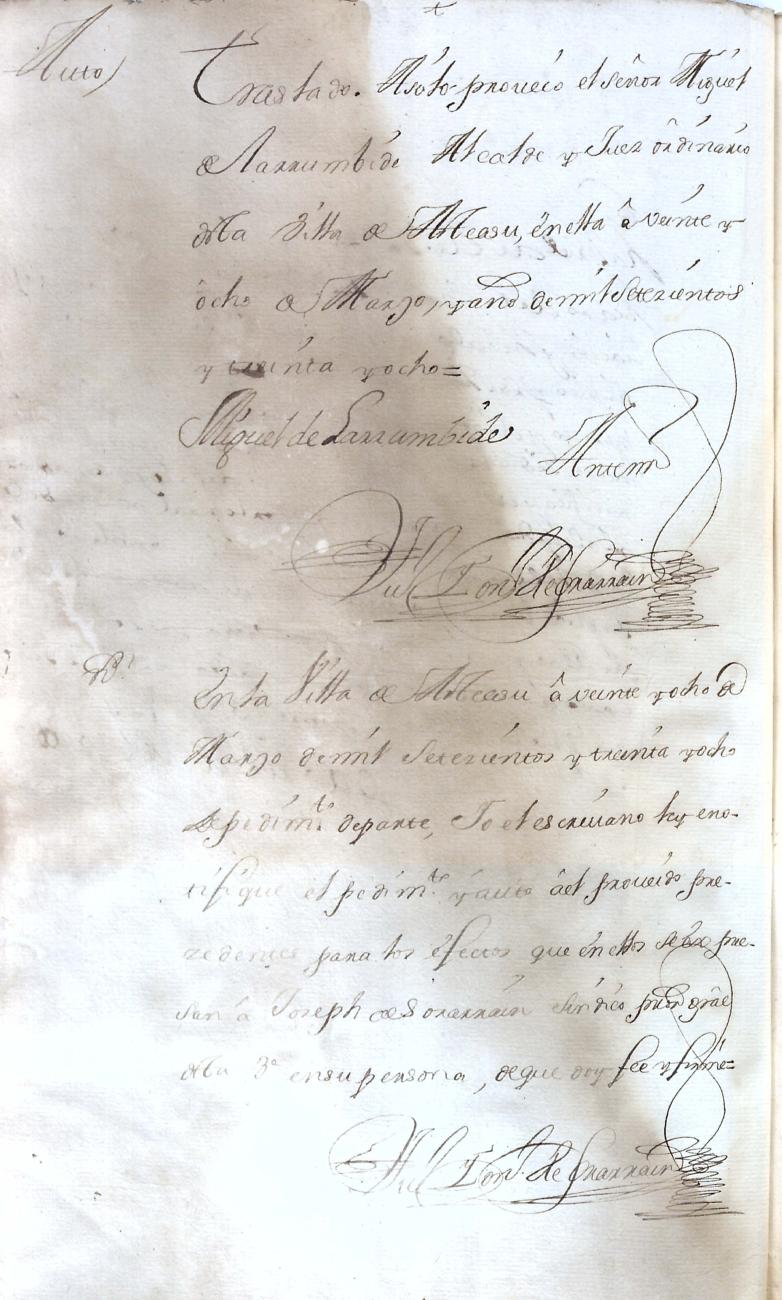 Auto)
Traslado. Asi lo proveio el señor Miguel
de Larrumbide Alcalde y Juez ordinario
de la Villa de Alteasu, en ella â veinte y
ocho de Marzo, y año de mil Setezientos
y treinta y ocho=
Miguel de Larrumbide
Antemi
de Sorarrain
En la Villa de Alteasu â veinte y ocho de
Marzo de mil Setezientos y treinta y ocho
de pedim.to de parte, Yo el escriuano ley e no-
tifique el pedim.to y auto âel proveido pre-
zedentes para los efectos que en ellos se expre-
san â Joseph de Sorarrain Sindico prior gral
de lla V.a en su persona, de que doy fee y firmé=
de Sorarrain